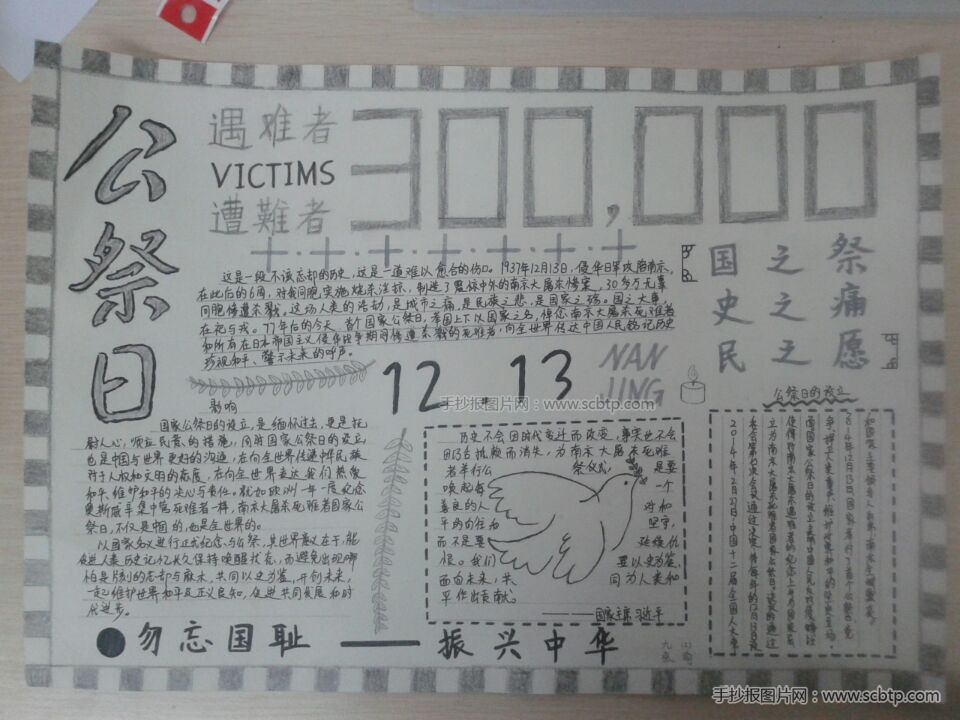 公祭日
遇难者
VICTIMS
遭難者
300,000
国之祭
史之痛
民之愿
这是一段不该忘却的历史,这是一道难以愈合的伤。1937年12月13日,侵华日军攻陷南京,
在此后的6周,对我同胞实施烧杀淫掠,制造了震惊中外的南京大屠杀惨案,30多万无辜
同胞惨遭杀戮。这场人类的浩劫,是城市之痛,是民族之悲,是国家之殇。国之大事,
在祀与戎。77年后的今天,首个国家公祭日,举国上下以国家之名,悼念南京大屠杀死难者
和所有在日本帝国主义侵华战争期间惨遭杀戮的死难者,向全世界传达中国人民铭记历史
珍视和平、警示未来的呼声。
12.13
NAN
JING
手抄报图片网:www.scbtp.com
影响
国家公祭日的设立,是缅怀过去,更是抚
慰人心,顺应民意的措施,同时国家公祭日的设立,
也是中国与世界更好的沟通,在向全世界传递中华民族
对于人权和文明的态度,在向全世界表达我们热爱
和平、维护和平的决心与责任。就如欧洲一年一度纪念
奥斯威辛集中营死难者一样,南京大屠杀死难者国家公
祭日,不仅是中国的,也是全世界的。
以国家名义进行正式纪念与公祭,其世界意义在于,能
促进人类历史记忆长久保持唤醒状态,而避免出现哪
怕是片刻的忘却与麻木,共同以史为鉴,开创未来,
一起维护世界和平及正义良知,促进共同发展和时
代进步。
历史不会因时代变迁而改变,事实也不会
因巧舌抵赖而消失,为南京大屠杀死难
者举行公祭仪式,是要
唤起每一个
善良的人对和
平的向往和坚守,
而不是要延续仇
恨。我们要以史为鉴,
面向未来,共同为人类和
平作出贡献。
——国家主席习近平
公祭日的设立
2014年2月27日中国十二届全国人大常
委会第七次会议通过决定,将每年的12月13日设
立为南京大屠杀死难者国家公祭日。决议的通过
勿忘国耻——振兴中华
手抄报图片网:www.scbtp.com